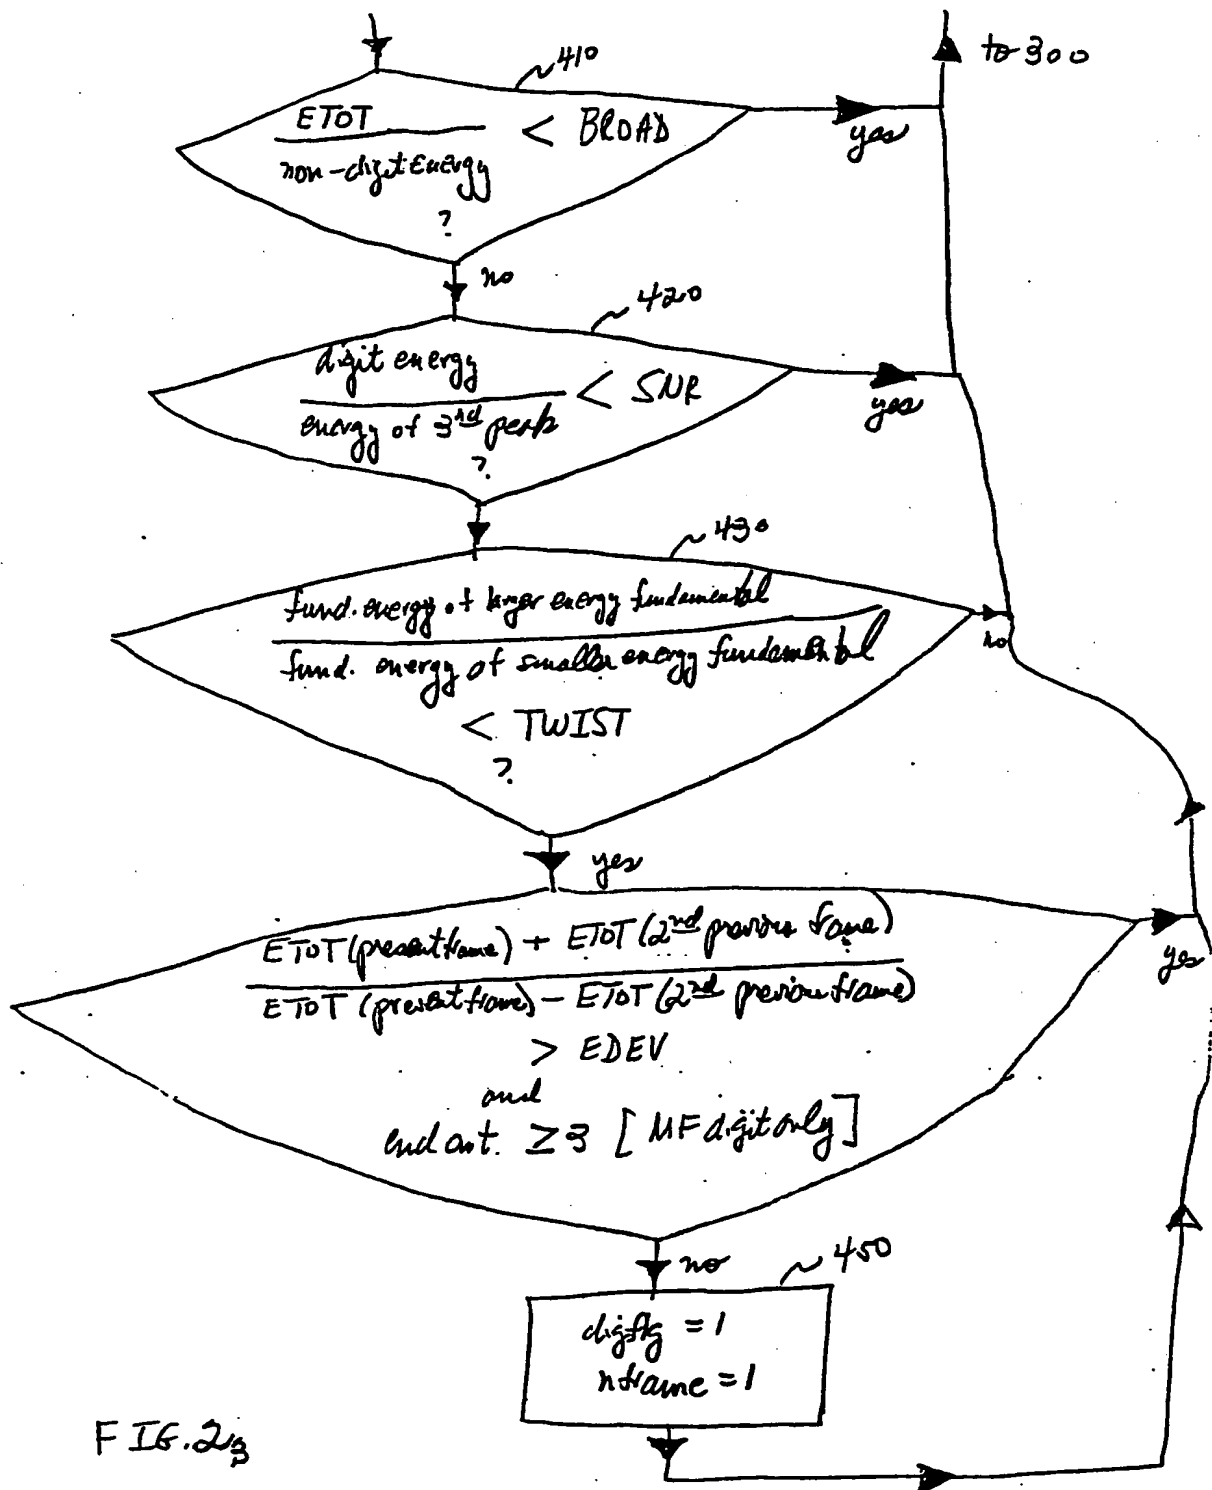 to 300
~410
ETOT
< BROAD
non-digit energy
?
yes
no
~420
digit energy
< SNR
energy of 3rd peak
?
yes
~430
fund. energy of larger energy fundamental
fund. energy of smaller energy fundamental
no
< TWIST
?
yes
ETOT (present frame) + ETOT (2nd previous frame)
ETOT (present frame) - ETOT (2nd previous frame)
yes
> EDEV
and
end cnt. ≥ 3 [MF digit only]
?
no
~450
digflg = 1
nframe = 1
FIG. 23